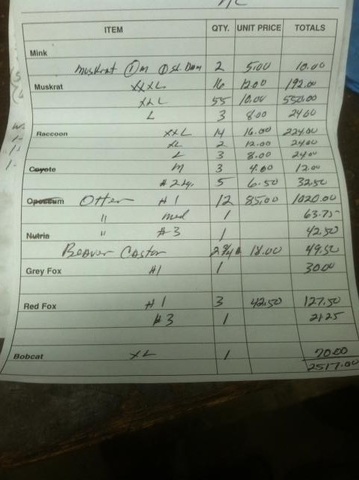 ITEM QTY. UNIT PRICE TOTALS
Mink
Muskrat 1 m 1 sl. Dam 2 5.00 10.00
Muskrat XXXL 16 12.00 192.00
XXL 55 10.00 550.00
L 3 8.00 24.00
Raccoon XXL 14 16.00 224.00
XL 2 12.00 24.00
L 3 8.00 24.00
Coyote M 3 4.00 12.00
#2 Lg. 5 6.50 32.50
Opossum Otter #1 12 85.00 1020.00
" med 1 63.75
Nutria " #3 1 42.50
Beaver Castor 2 3/4 # 18.00 49.50
Grey Fox #1 1 30.00
Red Fox #1 3 42.50 127.50
#3 1 21.25
Bobcat XL 1 70.00
2517.00